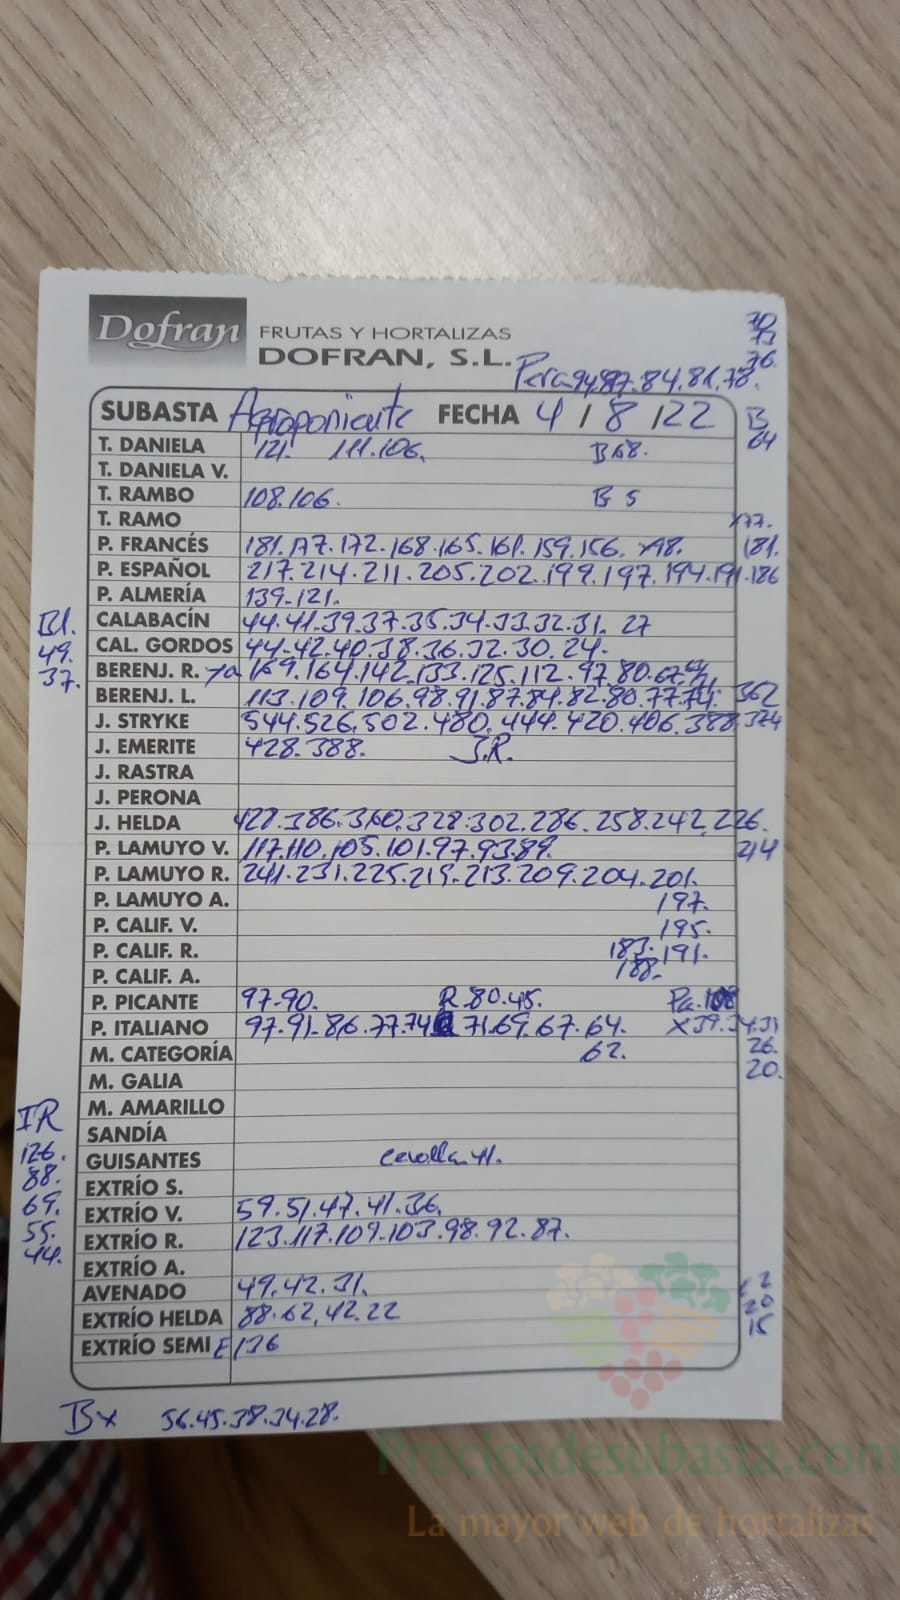 Dofran
FRUTAS Y HORTALIZAS
DOFRAN, S.L.
Pera 94.87.84.81.78.
76.
SUBASTA Agroponiente FECHA 4 / 8 / 22
B
64
T. DANIELA 121. 111.106. B68.
T. DANIELA V.
T. RAMBO 108.106. B 5
T. RAMO
P. FRANCÉS 181.177.172.168.165.161.159.156. 181.
P. ESPAÑOL 217.214.211.205.202.199.197.194.191.186
P. ALMERÍA 139-121.
CALABACÍN 44.41.39.37.35.34.33.32.31. 27
Bl.
49.
37.
CAL. GORDOS 44-42.40.38.36.32.30.24.
BERENJ. R. 169.164.142.133.125.112.97.80.67.
BERENJ. L. 113.109.106.98.91.87.84.82.80.77.74. 362
J. STRYKE 544.526.502.480.444.420.406.388.374
J. EMERITE 428.388. J.R.
J. RASTRA
J. PERONA
J. HELDA 428.386.360.328.302.286.258.242.226.
214
P. LAMUYO V. 117.110.105.101.97.93.89.
P. LAMUYO R. 241.231.225.219.213.209.204.201.
P. LAMUYO A. 197.
P. CALIF. V. 195.
P. CALIF. R. 183. 191.
P. CALIF. A. 188.
P. PICANTE 97-90. R.80.45.
P. ITALIANO 97-91-86.77.74 71.69.67.64. X39.34.31
M. CATEGORÍA 62. 26.
20.
M. GALIA
M. AMARILLO
SANDÍA
GUISANTES cevolla 41.
IR
126.
88.
69.
55.
44.
EXTRÍO S.
EXTRÍO V. 59.51.47.41.36.
EXTRÍO R. 123.117.109-103.98.92.87.
EXTRÍO A.
AVENADO 49.42.31.
EXTRÍO HELDA 88-62.42.22
20
15
EXTRÍO SEMI E/36
Bx 56.45.38.34.28.
Preciosdesubasta.com
La mayor web de hortalizas